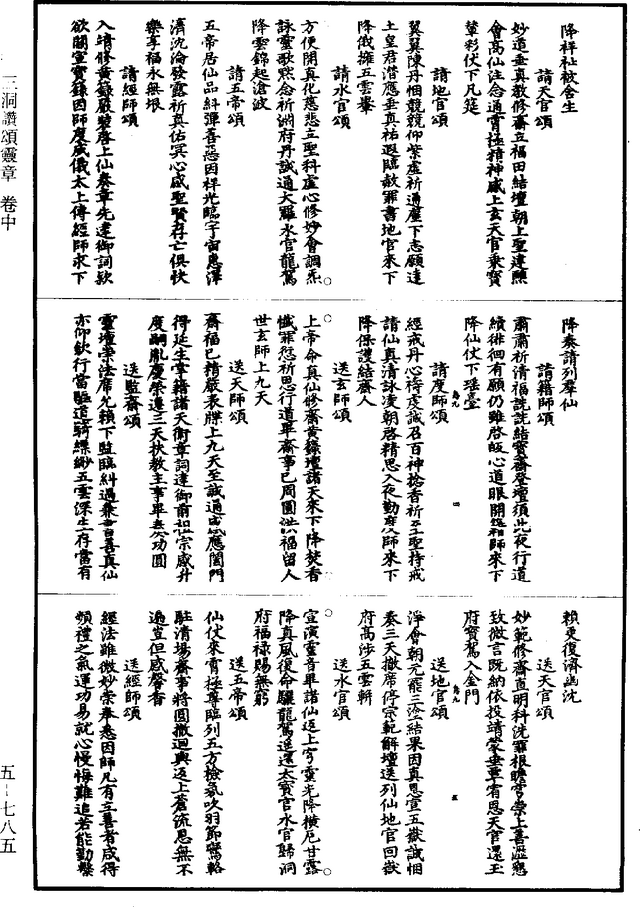 三洞讚頌靈章 卷中
降祥祉被含生
請天官頌
妙道垂真教修齋立福田結壇朝上聖達懇
會高仙注念通霄極精神感上玄天官乗寳
輦彩仗下凡筵
請地官頌
翼翼陳丹悃兢兢仰紫虚祈通塵下志願達
土皇君潜應垂真祐遐臨赦罪書地官來下
降儀擁五雲轝
請水官頌
方便開真化慈悲立聖科虚心修妙會調炁
詠靈歌㷊念祈淵府丹誠通大羅水官龍駕
降雲錦起滄波
請五帝頌
五帝居仙品糾彈善惡因祥光臨宇宙恩澤
濟沈淪發露祈真佑冥心感聖賢存亡俱快
樂享福永無垠
請經師頌
入靖修黄籙嚴裝啓上仙奏章先達御詞款
欲關宣寳籙因師度威儀太上傳經師來下
降奏請列羣仙
請籍師頌
肅肅祈清福詵詵結寳齋登壇須此夜行道
續徘徊有願仍雖啓皈心道眼開籍師來下
降仙仗下瑶臺
請度師頌
經戒丹心祷虔誠召百神捻香祈至聖持戒
請仙真清詠凌朝啓精思入夜勤度師來下
降保護結齋人
送玄師頌
上帝命真仙修齋黄籙壇諸天來下降焚香
懺罪愆祈恩行道畢齋事已周圓洪福留人
世玄師上九天
送天師頌
齋福已精嚴表牒上九天至誠通感應闔門
得延生掌籍諸天衞章詞達御前祖宗咸升
度嗣胤慶榮遷三天扶教主事畢炁功圓
送監齋頌
靈壇崇法席允賴下監臨糾過兼書善真仙
亦仰欽行當驅道騎縹緲五雲深生存當有
賴更復濟幽沈
送天官頌
妙範修齋直明科洗罪根瞻穹崇上善瀝懇
致微言既納依投請蒙垂宥恩天官還玉
府寳駕入金門
送地官頌
淨會朝元罷三塗結果因真恩宣五嶽誠悃
奏三天撤席停宗範解壇送列仙地官回嶽
府高涉五雲軿
送水官頌
宣演靈音畢諾仙返上穹靈光降横厄甘露
降真風復命驅龍駕迢還太寳官水官歸洞
府福禄賜無窮
送五帝頌
仙仗來霄極尊臨列五方檢氛吹羽節鸞輅
駐清場齋事將圓撤迴輿返上蒼流恩無不
遍豈但感馨香
送經師頌
經法雖微妙崇奉悉因師凡有立善者咸得
頻禮之氣運功易就心慢悔難追若能勤繫
五－七八五